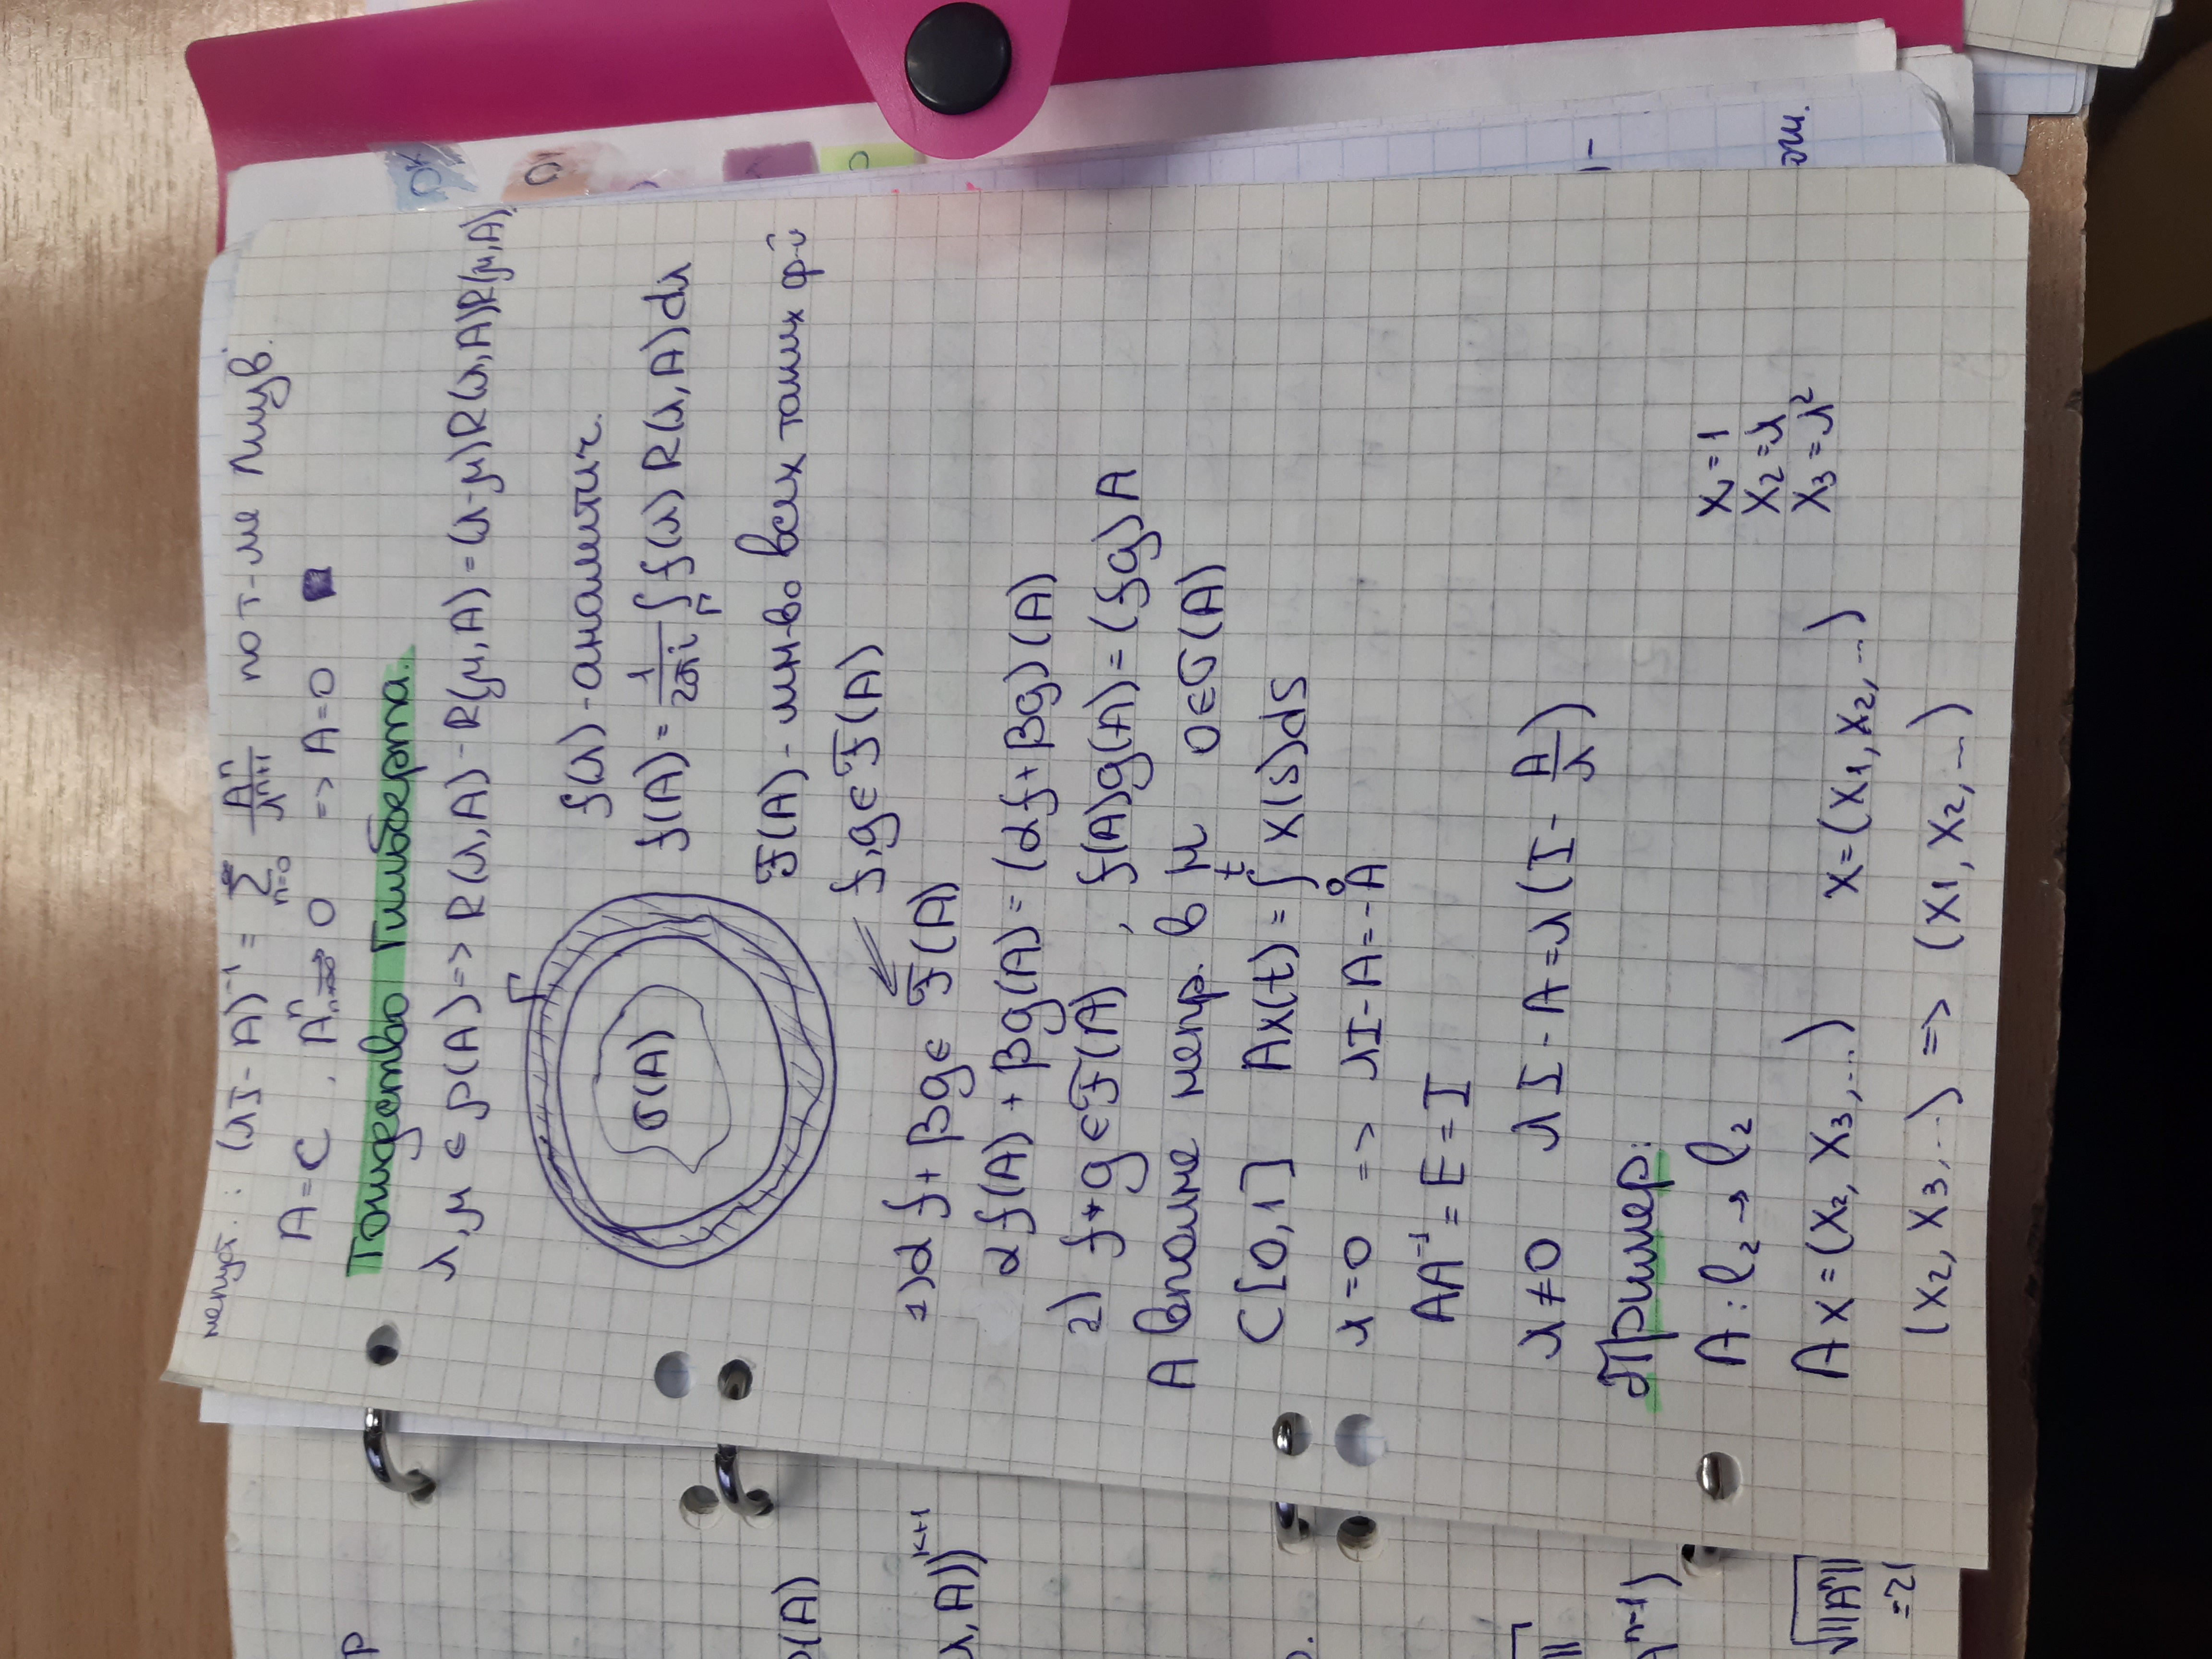 непуст.: (λI-A)⁻¹ = ∑ₙ₌₀^∞ Aⁿ/λⁿ⁺¹ по т-ме Лиув.
A=C, Aⁿ → 0 => A=0 ■
Тождество Гильберта.
λ,μ ∈ ρ(A) => R(λ,A) - R(μ,A) = (λ-μ)R(λ,A)R(μ,A)
Γ
σ(A)
f(λ) - аналитич.
f(A) = 1/2πi ∫_Γ f(λ) R(λ,A)dλ
F(A) - мн-во всех таких ф-й
f,g ∈ F(A)
1) αf + βg ∈ F(A)
αf(A) + βg(A) = (αf+βg)(A)
2) f*g ∈ F(A) , f(A)g(A) = (fg)A
A вполне непр. в μ 0∈σ(A)
C[0,1] Ax(t) = ∫₀ᵗ x(s)ds
λ=0 => λI-A=-A
AA⁻¹ = E = I
λ≠0 λI-A = λ(I - A/λ)
Пример:
A: l₂→l₂
x₁=1
x₂=λ
x₃=λ²
Ax = (x₂, x₃,...) x=(x₁,x₂,...)
(x₂, x₃,...) => (x₁,x₂,...)
ρ(A)
λ,A))ᵏ⁺¹
ⁿ⁻¹)
√||Aⁿ||